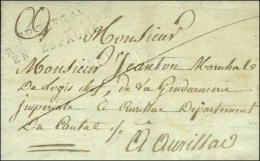 Monsieur
Monsieur Jeanton Marechal
De Logis chef, de la Gendarmerie
Imperiale à Aurillac Departement
Du Cantal
A Aurillac